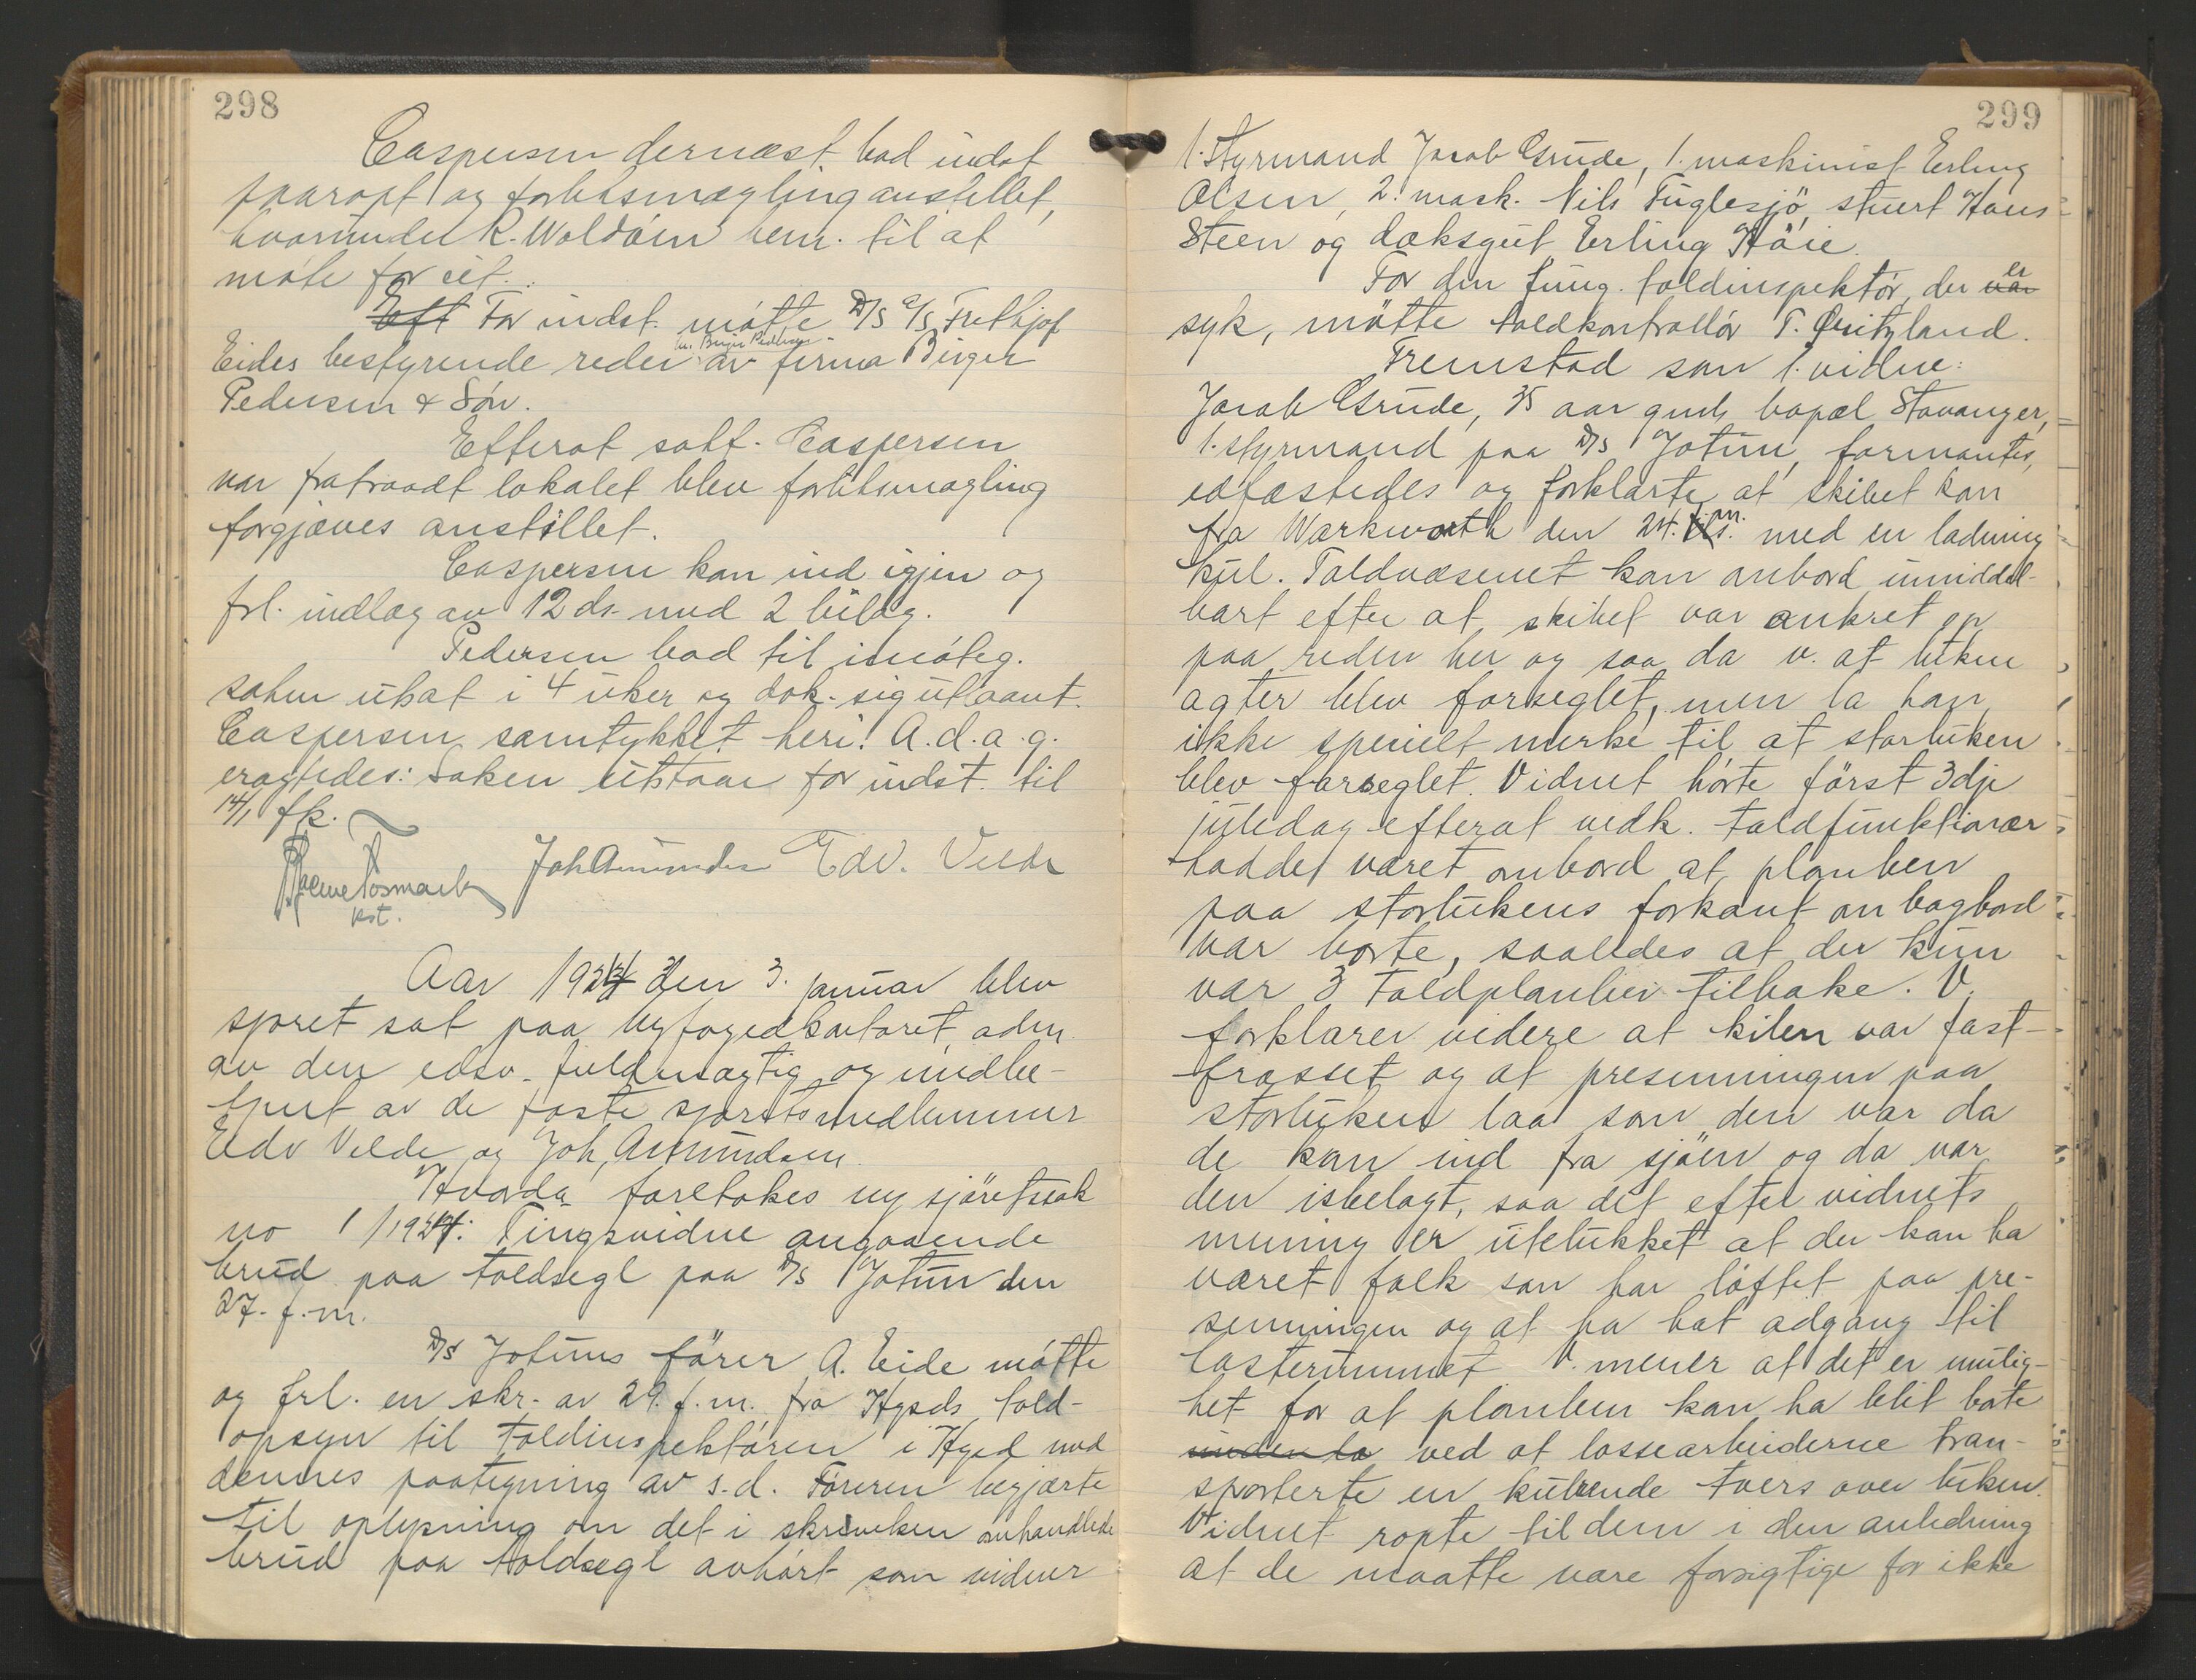 298
Caspersen dernæst bad indst.
paaropt og forliksmægling anstillet,
hvorunder R. Woldsen bem. til at
møte for eit.
For indst. møtte D/S A/S Frithjof
m. Birger Pedersen
Eides bestyrende reder av firma Birger
Pedersen & Søn.
Efterat sakf. Caspersen
var fratraadt lokalet blev forliksmægling
forgjæves anstillet.
Caspersen kom ind igjen og
frl. indlæg av 12 ds. med 2 bilag.
Pedersen bad til imøteg.
saken utsat i 4 uker og dok. sig utlaant.
Caspersen samtykket heri. A.d.a.g.
eragtedes: Saken utstaar for indst. til
14/1 fk.
kst. Joh Amundsen Edv. Velde
Aar 1924 den 3. januar blev
sjøret sat paa byfogedkontoret, adm.
av den edsv. fuldmægtig og medbe-
tjent av de faste sjøretsmedlemmer
Edv Velde og Joh. Amundsen.
Hvorda foretokes ny sjøretssak
no 1/1924: Tingsvidne angaaende
brud paa toldsegl paa D/S Jotun den
27. f.m.
D/S Jotuns fører A. Eide møtte
og frl. en skr. av 29. f.m. fra Hgsds told-
opsyn til toldinspektøren i Hgsd med
dennes paategning av s.d. Føreren begjærte
til oplysning om det i skrivelsen omhandlede
brud paa toldsegl avhørt som vidner
299
1. styrmand Jacob Grude, 1. maskinist Erling
Olsen, 2. mask. Nils Fuglesjø, stuert Hans
Steen og dæksgut Erling Høie.
For den fung. toldinspektør, der var er
syk, møtte toldkontrollør T. Qvitzland.
Fremstod som 1. vidne:
Jacob Grude, 35 aar gml, bopæl Stavanger,
1. styrmand paa D/S Jotun, formantes,
edfæstedes og forklarte at skibet kom
fra Warkworth den 24. f.m. med en ladning
kul. Toldvæsenet kom ombord umiddel-
bart efter at skibet var ankret op
paa reden her og saa da v. at luken
agter blev forseglet, men la han
ikke specielt merke til at storluken
blev forseglet. Vidnet hørte først 3dje
juledag efterat vedk. toldfunktionær
hadde været ombord at planken
paa storlukens forkant om bagbord
var borte, saaledes at der kun
var 3 toldplanker tilbake. V.
forklarer videre at kilen var fast-
frosset og at presenningen paa
storluken laa som den var da
de kom ind fra sjøen og da var
den isbelagt, saa det efter vidnets
mening er utelukket at der kan ha
været folk som har løftet paa pre-
senningen og at ha hat adgang til
lasterummet. V. mener at det er mulig-
het for at planken kan ha blit borte
ved at lossearbeiderne tran-
sporterte en kulrende tvers over luken.
Vidnet ropte til dem i den anledning
at de maatte være forsigtige for ikke